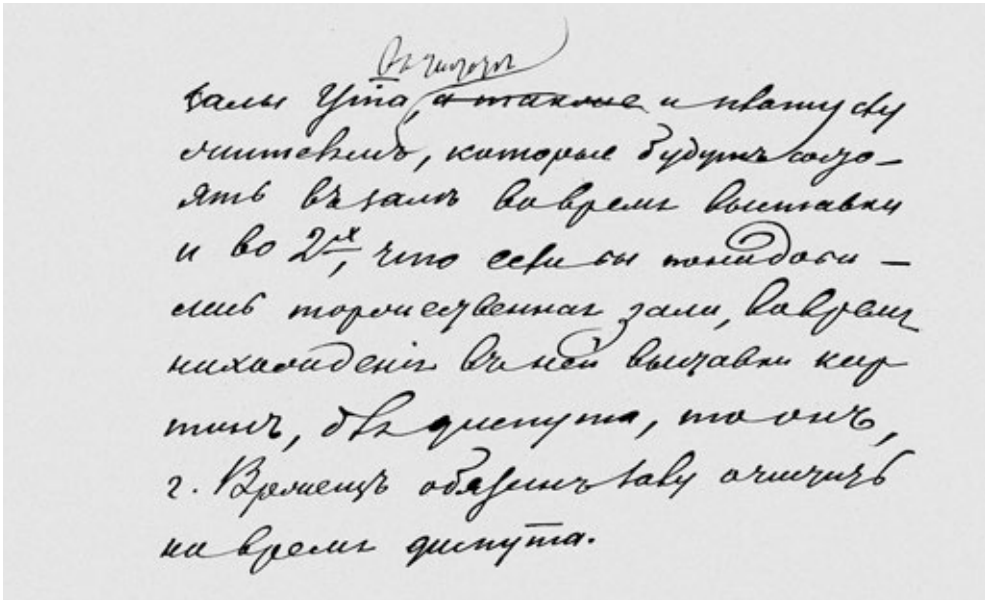 залы Ун-та, а также и плату слу
жителямъ, которые будутъ состо-
ять въ залѣ во время выставки
и во 2-хъ, что если бы понадоби-
лись торжественная зала, во время
нахожденія въ ней выставки кар
тинъ, для диспута, то онъ,
г. Брожецъ обязанъ залу очистить
на время диспута.